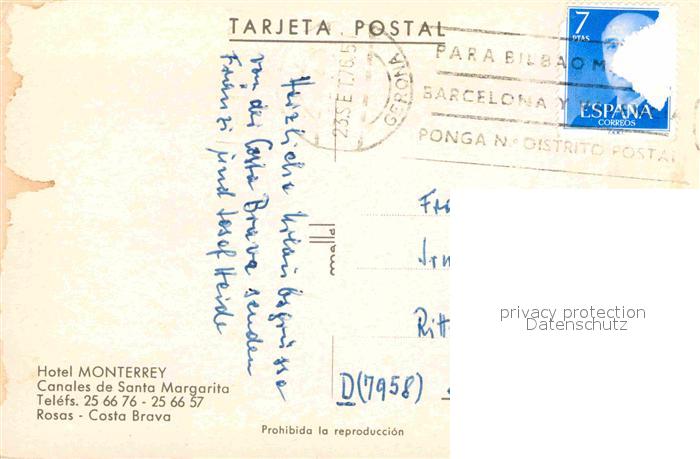 TARJETA POSTAL
23 SE 1176.5
GERONA
PARA BILBAO M
BARCELONA Y
PONGA N.º DISTRITO POSTAL
7
PTAS
ESPAÑA
CORREOS
Herzliche Urlaubsgrüsse
von der Costa Brava senden
Franzi und Josef Heide
Fr
Ritt
D(7958)
privacy protection
Datenschutz
Hotel MONTERREY
Canales de Santa Margarita
Teléfs. 25 66 76 - 25 66 57
Rosas - Costa Brava
Prohibida la reproducción